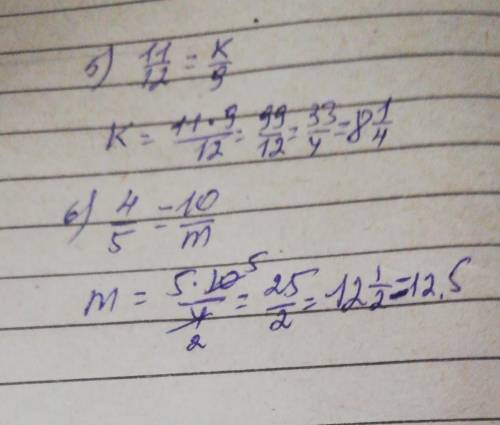 5) 11/12 = K/9
K = 11·9/12 = 99/12 = 33/4 = 8 1/4
6) 4/5 = 10/m
m = 5·10 5/4 2 = 25/2 = 12 1/2 = 12,5